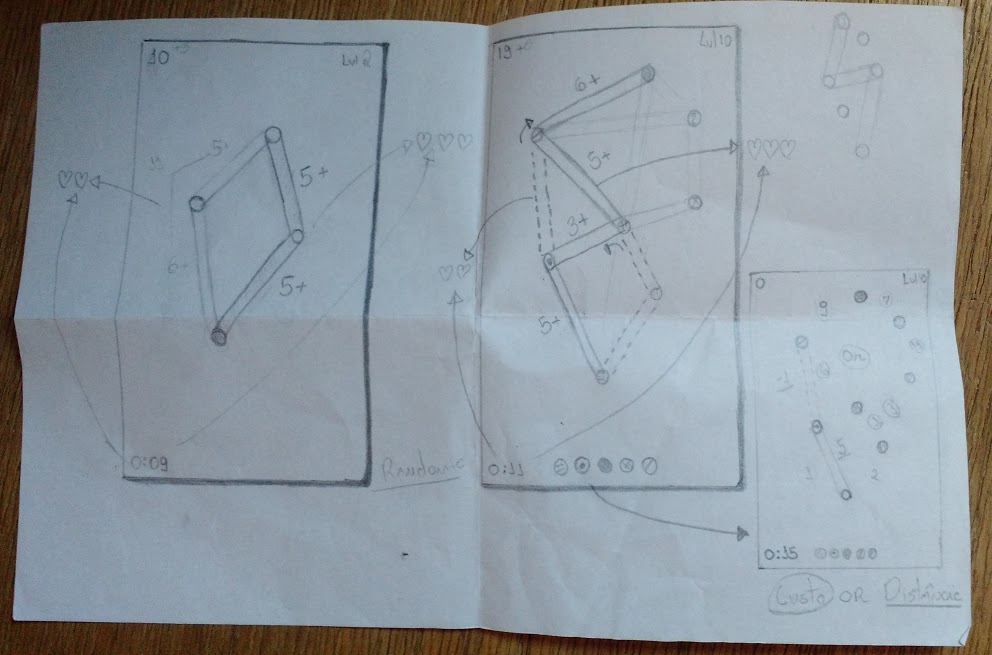 10 +5
Lvl 2
5+
5+
6+
5+
0:09
Randomic
19 +6
Lvl 10
6+
5+
3+
5+
0:11
0
9
7
OR
5
1
2
0:15
Custo OR Distância